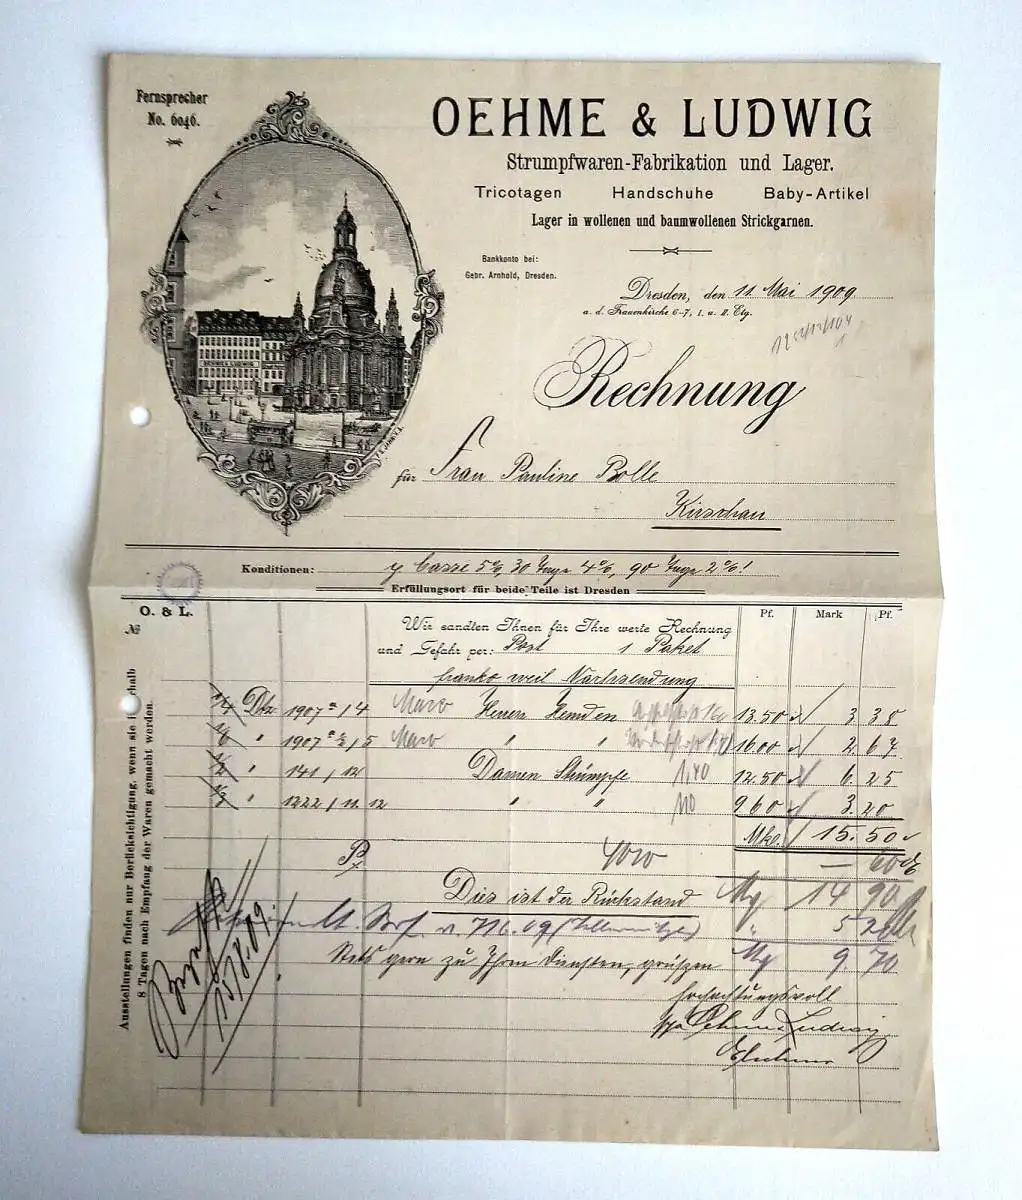 Fernsprecher
No. 6046.
OEHME & LUDWIG
Strumpfwaren-Fabrikation und Lager.
Tricotagen Handschuhe Baby-Artikel
Lager in wollenen und baumwollenen Strickgarnen.
Bankkonto bei:
Gebr. Arnhold, Dresden.
Dresden, den 11. Mai 1909
a. d. Frauenkirche 6-7, I. u. II. Etg.
Rechnung
für Frau Pauline Bolle
Kirschau
Konditionen: p Casse 5%, 30 Tage 4%, 90 Tage 2%!
Erfüllungsort für beide Teile ist Dresden
O. & L.
№
Pf. Mark Pf.
Wir sandten Ihnen für Ihre werte Rechnung
und Gefahr per: Post 1 Paket
franko weil Nachsendung
1/4 Dtz 1907 /4 Maco Herren Hemden 13.50 3 38
1/6 " 1907 /5 Maco " " 16.00 2 67
1/2 " 141/12 Damen Strümpfe 1,40 12.50 6 25
1/3 " 1222/11.12 " " 110 9 60 3.20
Mk. 15.50
— 60
Dies ist der Rückstand 14 90
5 20
9. 70
Stets gern zu Ihren Diensten, grüßen
hochachtungsvoll
ppa Oehme & Ludwig
15/8.09.
Ausstellungen finden nur Berücksichtigung, wenn sie innerhalb
8 Tagen nach Empfang der Waren gemacht werden.